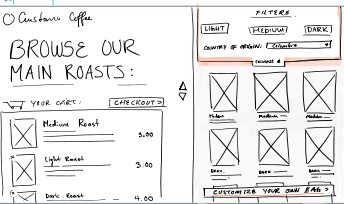 Custom Coffee
BROWSE OUR
MAIN ROASTS:
YOUR CART:
CHECKOUT >
Medium Roast
3.00
Light Roast
3.00
Dark Roast
4.00
FILTERS
LIGHT
MEDIUM
DARK
COUNTRY OF ORIGIN:
Colombia
Medium
Medium
CUSTOMIZE YOUR OWN BAG >